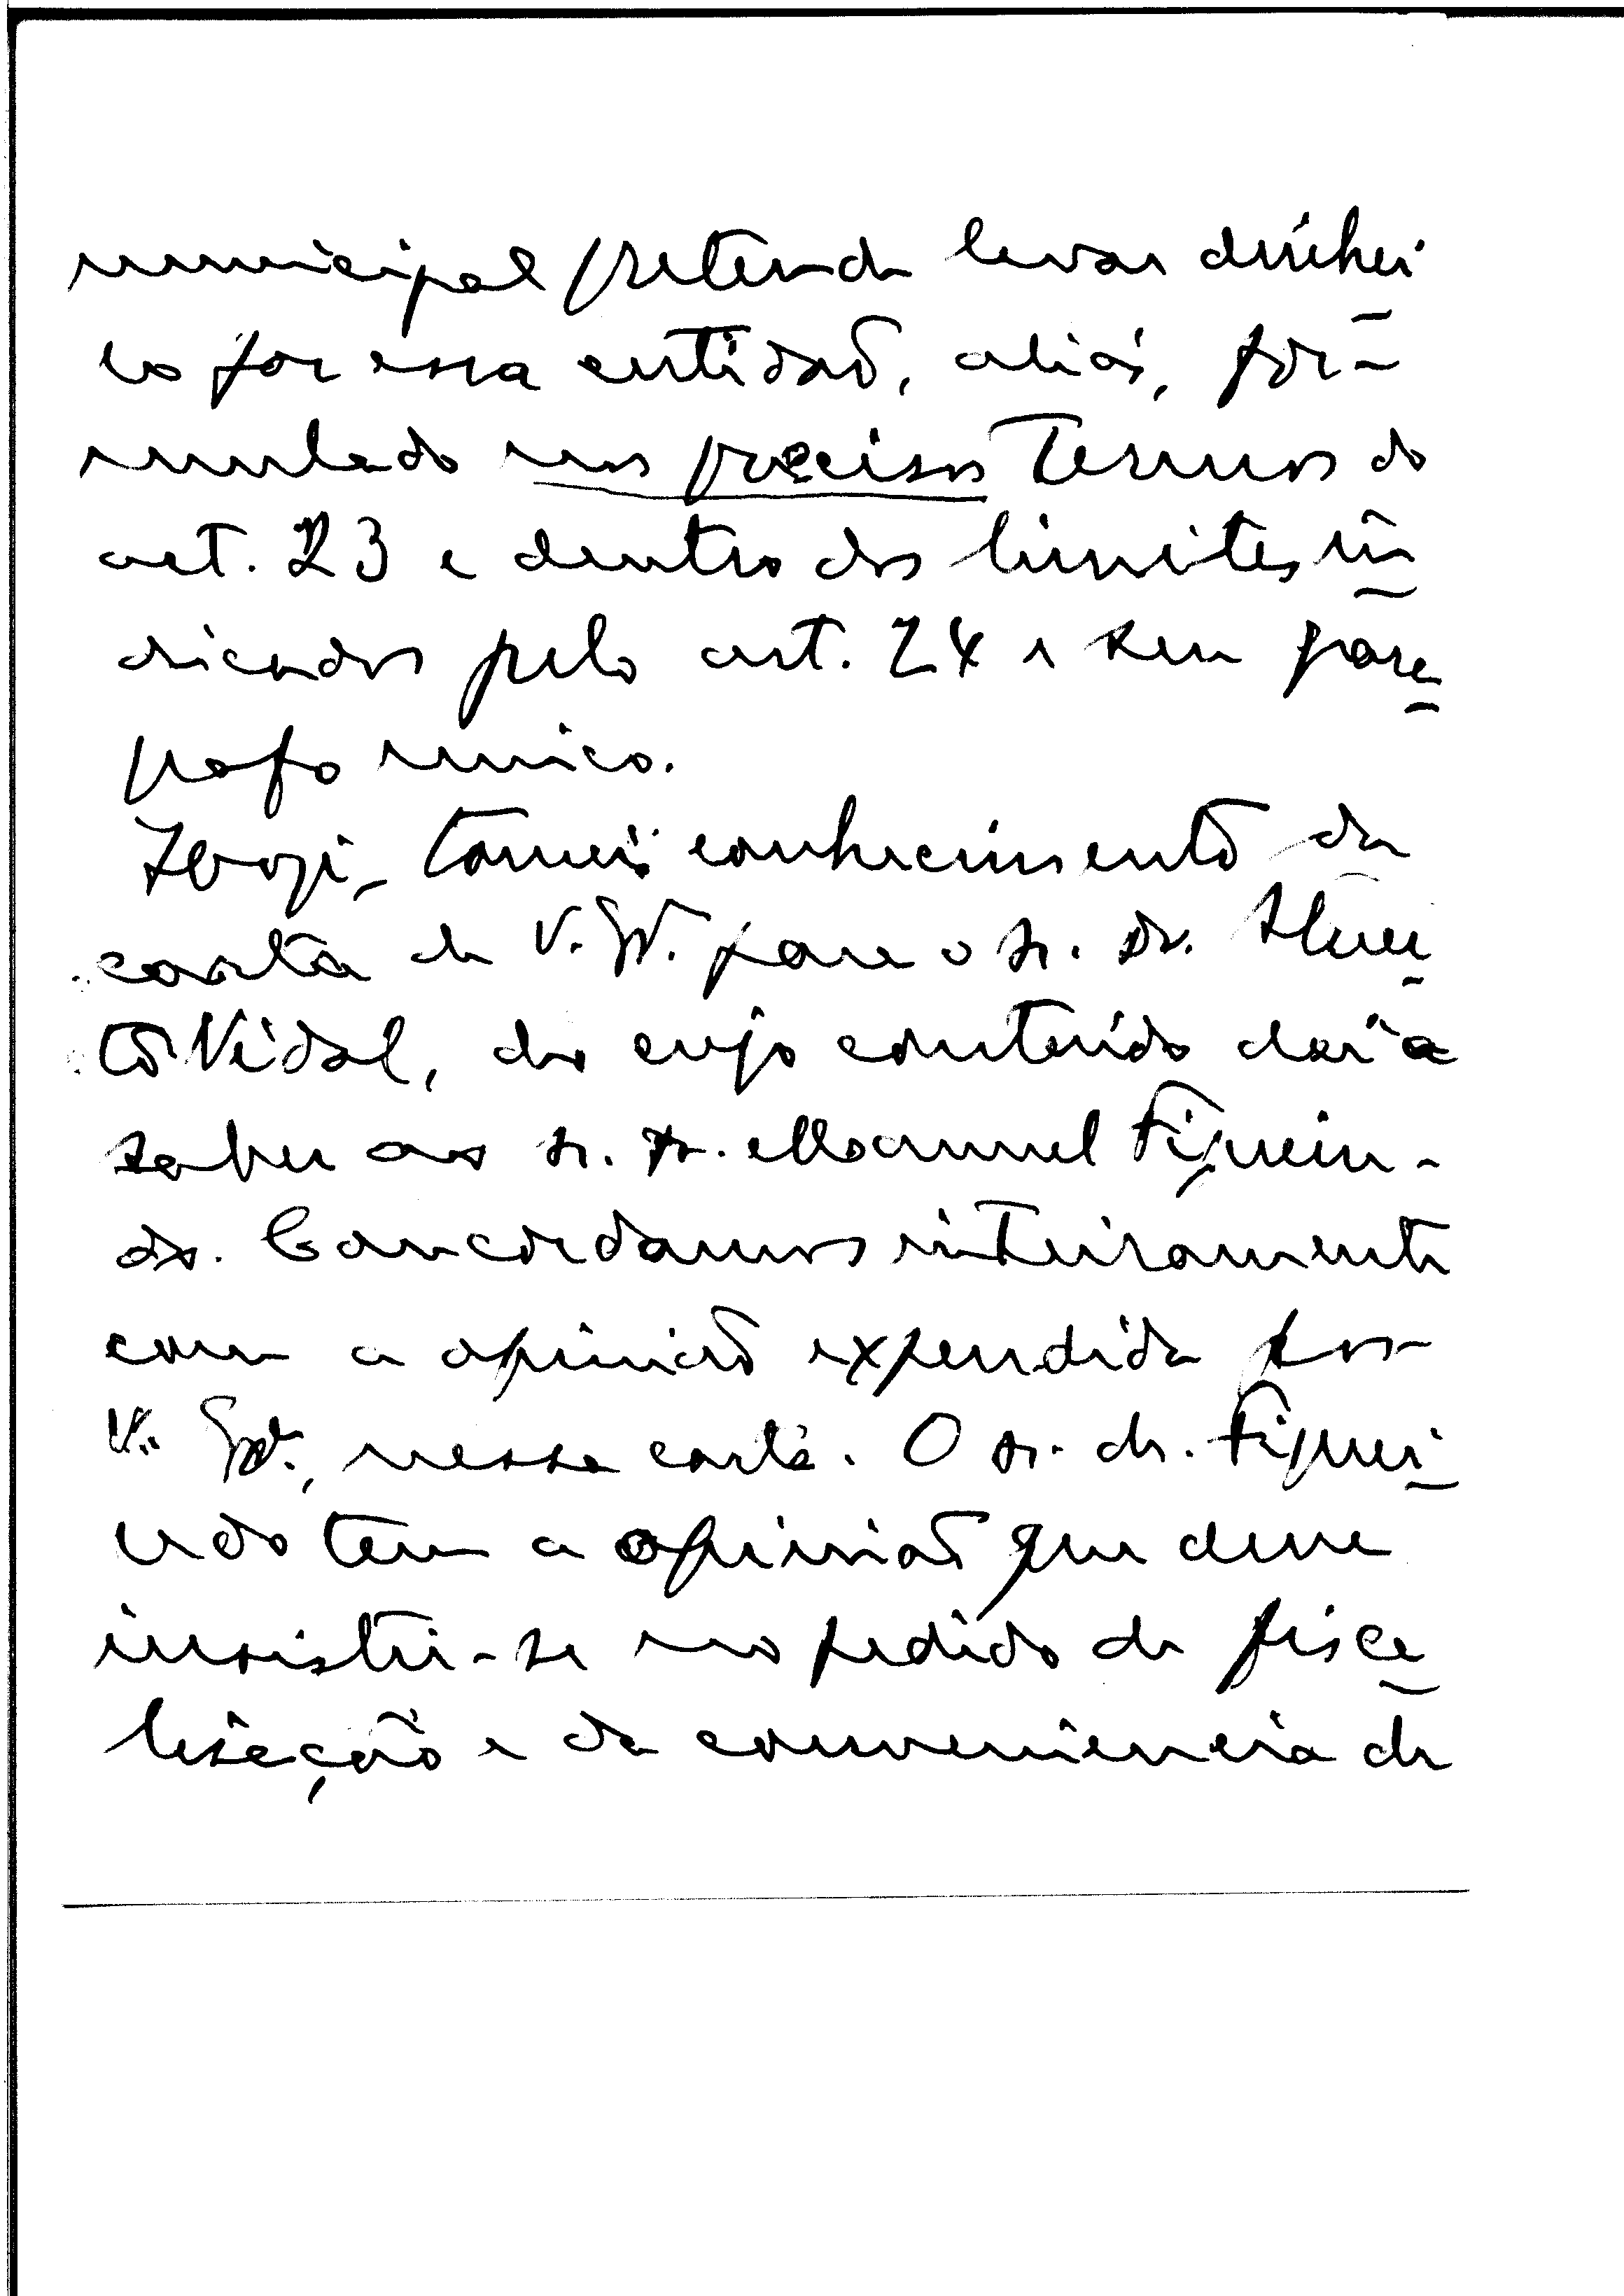 municipal pretende levar dinhei-
ro por essa entidade, aliás, for-
mulado nos precisos termos do
art. 23 e dentro dos limites in-
dicados pelo art. 24 e seu para-
grafo unico.
Hoje, tomei conhecimento da
carta de V. Ex. para o sr. dr.
to Vidal, de cujo conteúdo dei a
saber ao sr. dr. Manuel Figueire-
do. Concordamos inteiramente
com a opinião expendida por
V. Ex., nessa carta. O sr. dr. Figuei-
redo tem a opinião que deve
insistir-se no pedido de fisca-
lisação e da conveniencia de